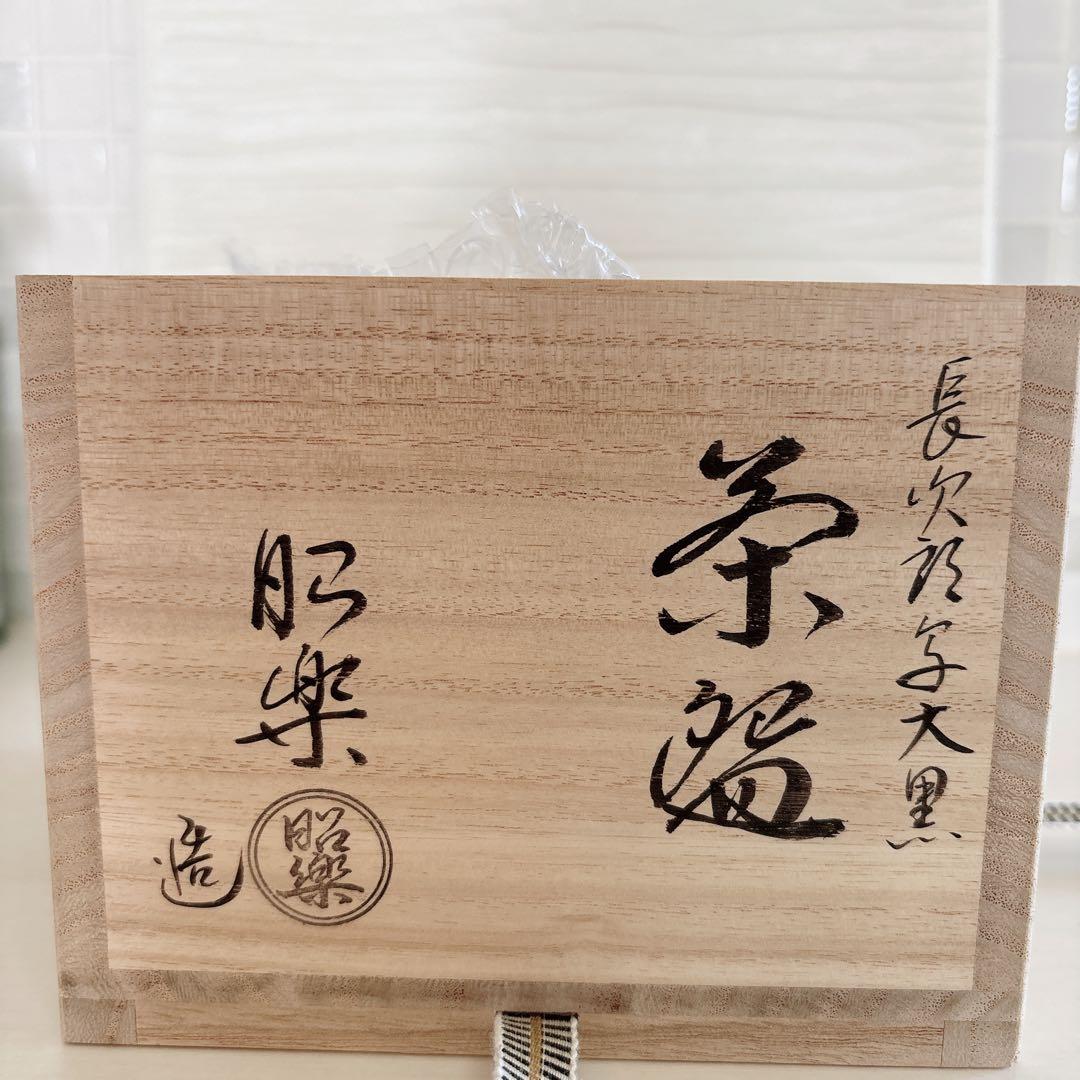 長次郎写大黒
茶盌
昭樂
造
昭樂